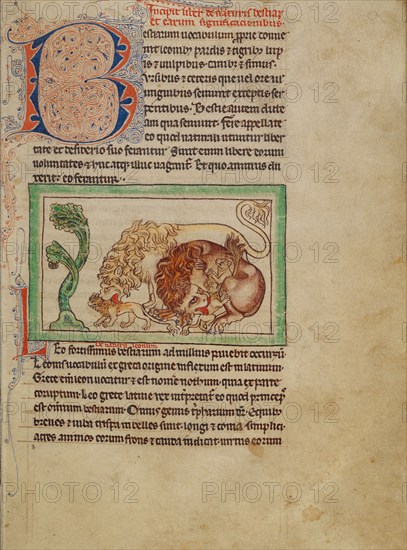 Incipit liber de naturis bestiar
et earum significacionibus
Bestiarum uocabulum proprie conue
nit leonib; pardis et tigrib; lup
is et uulpibus canib; et simiis
Vrsibus et ceteris que uel ore ul
unguibus seuiunt exceptis ser
pentibus. Bestie autem dicte
a ui qua seuiunt. Fere appellate
eo quod naturali utuntur liber
tate et desiderio suo ferantur. Sunt enim libere eorum
uoluntates et huc atq; illuc uagant. Et quo animus du
xerit eo ferantur.
De natura leonum
Leo fortissimus bestiarum ad nullius pauebit occursu
Leonis uocabulu ex greca origine inflexum est in latinum
Grece enim leon uocatur et est nomen nothum quia ex parte
corruptum. Leo grece latine rex interpretat eo quod princeps
est omnium bestiarum. Cuius genus
breues et iuba crispa inbelles sunt. longi et coma simplici
acres animos eorum frons et cauda indicat uirtus eorum
PHOTO12